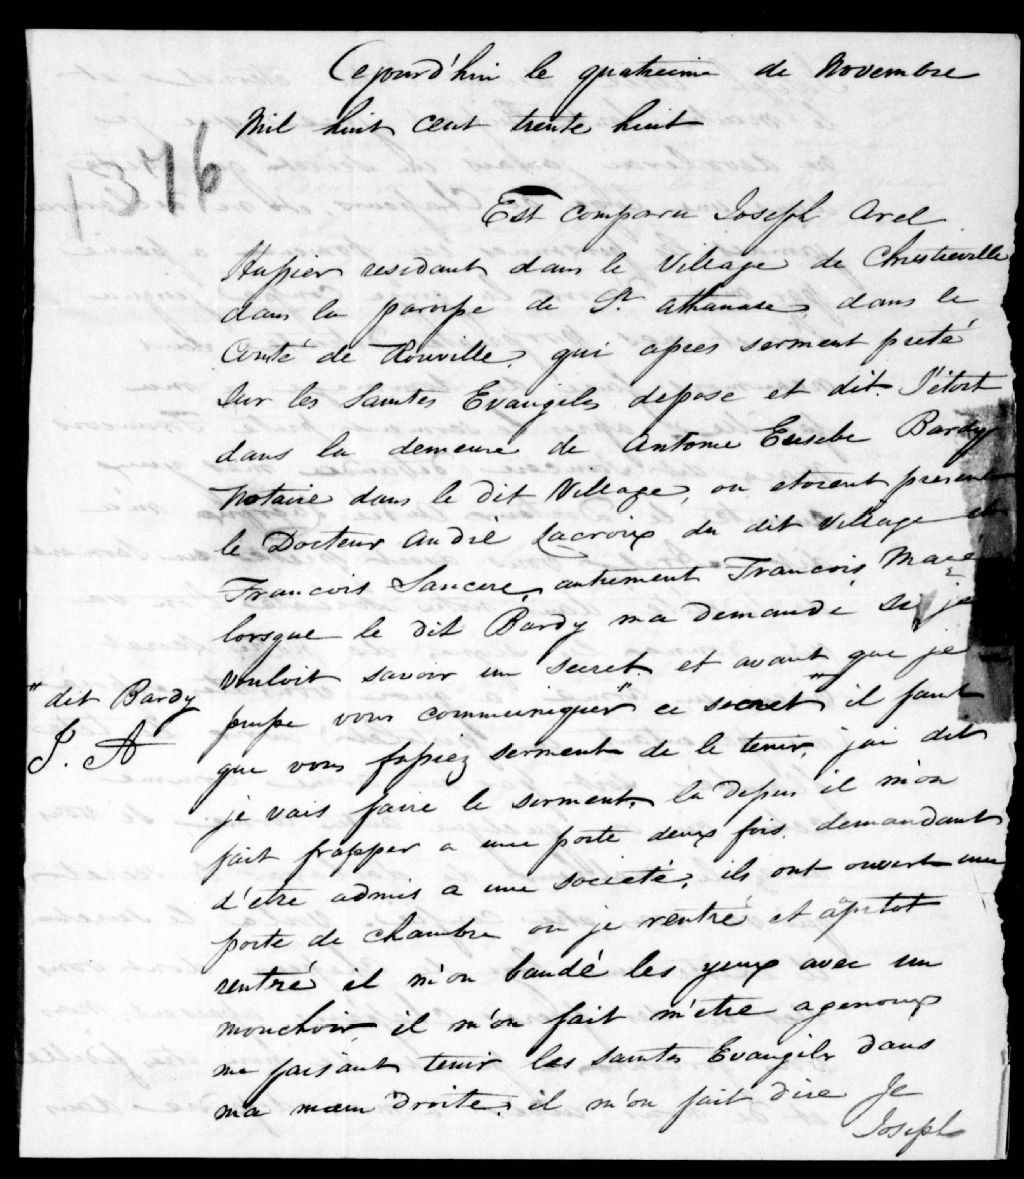 Cejourd'hui le quatrieme de Novembre
Mil huit cent trente huit
1376
Est comparu Joseph Arel
Huissier residant dans le Village de Christieville
dans la paroisse de St. Athanase dans le
Comté de Rouville, qui apres serment preté
Sur les Saintes Evangiles depose et dit. J'étoit
dans la demeure de Antoine Eusebe Bardy
Notaire dans le dit Village, ou etoient present
le Docteur André Lacroix du dit Village et
Francois Sancere, autrement Francois Macé
lorsque le dit Bardy m'a demandé si je
vouloit savoir un secret. et avant que je
puisse vous communiquer " ce secret " il faut
" dit Bardy
J. A
que vous fassiez serment de le tenir, j'ai dit
je vais faire le serment, la depus il m'on
fait frapper a une porte deux fois. demandant
d'etre admis a une societé, ils ont ouvert une
porte de chambre ou je rentré et assitot
rentré il m'on bandé les yeux avec un
mouchoir, il m'on fait m'etre a genoux
me faisant tenir les saintes Evangiles dans
ma main droite, il m'on fait dire Je
Joseph